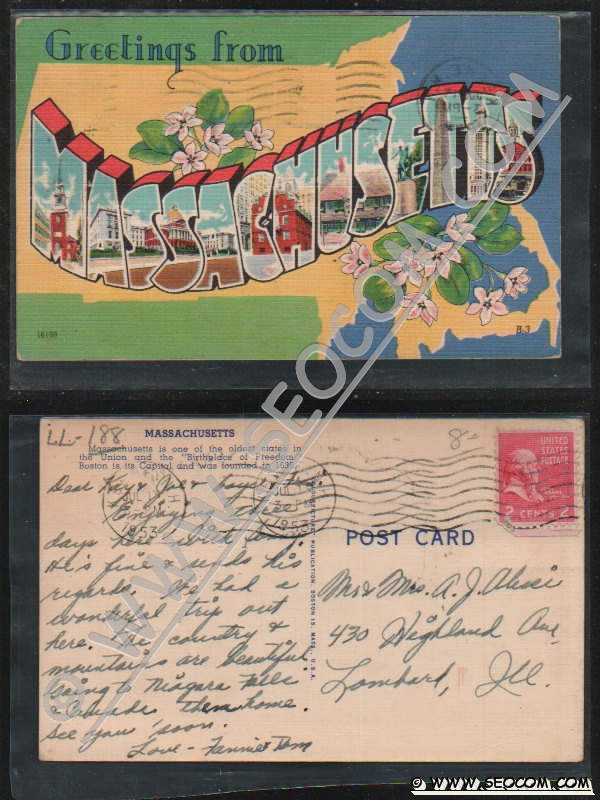 Greetings from
MASSACHUSETTS
16199
B-3
© WWW.SEOCOM.COM
LL-188
8
MASSACHUSETTS
Massachusetts is one of the oldest states in
the Union and the "Birthplace of Freedom".
Boston is its Capital and was founded in 1630.
UNITED
STATES
POSTAGE
2 CENTS 2
1953
1953
POST CARD
PUBLICATION, BOSTON 15, MASS., U.S.A.
Dear Kay, Joe &
Enjoying these
days here with
He's fine & sends his
regards. We had a
wonderful trip out
here. The country &
mountains are beautiful
Going to Niagara Falls
& Canada then home.
See you soon.
Love - Fannie & Tom
Mr & Mrs. A. J. Alessi
430 Highland Ave,
Lombard, Ill.
© WWW.SEOCOM.COM